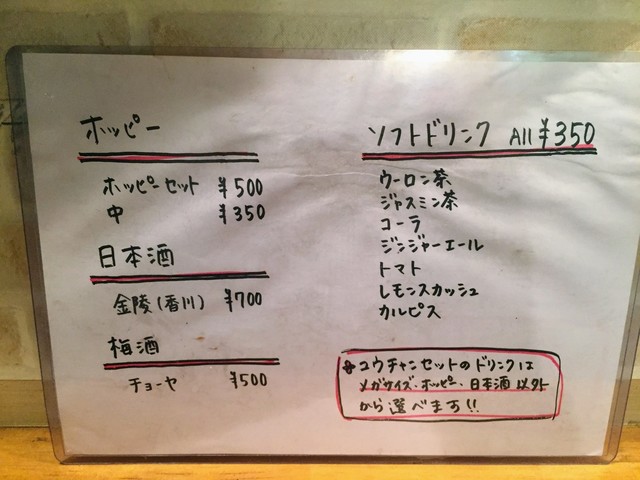 ホッピー
ホッピーセット ¥500
中 ¥350
日本酒
金陵(香川) ¥700
梅酒
チョーヤ ¥500
ソフトドリンク All ¥350
ウーロン茶
ジャスミン茶
コーラ
ジンジャーエール
トマト
レモンスカッシュ
カルピス
※ユウチャンセットのドリンクは
メガサイズ・ホッピー、日本酒以外
から選べます!!